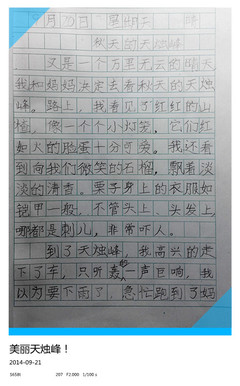 月29日 星期二 晴
秋天的天烛峰
又是一个万里无云的晴天，
我和妈妈决定去看秋天的天烛
峰。路上，我看见了红红的山
楂，像一个个小灯笼。它们红
如火的脸蛋十分可爱。我还看
到向我们微笑的石榴，飘着淡
淡的清香。栗子身上的衣服如
铠甲一般，不管头上、头发上，
哪都是刺儿，非常吓人。
到了天烛峰，我高兴的走
下了车，只听轰的一声巨响，我
以为要下雨了，急忙跑到了妈
美丽天烛峰！
2014-09-21
1/100 s